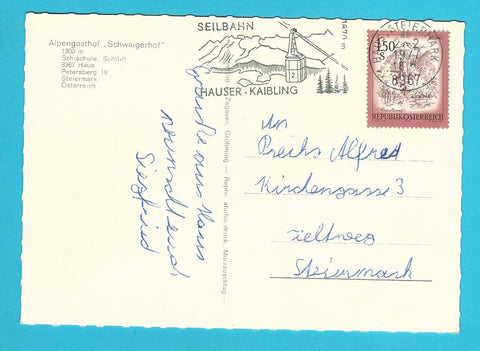 Alpengasthof „Schwaigerhof"
1300 m
Schischule, Schilift
8967 Haus
Petersberg 19
Steiermark
Österreich
SEILBAHN
1870 m
2
HAUSER - KAIBLING
STEIERMARK
8967
1.50
REPUBLIK ÖSTERREICH
Grüße aus Haus
wünscht euch
Siegfried
Gröbming — Repro: studio druck, Mürzzuschlag
An
Alfred
Kirchengasse 3
Zeltweg
Steiermark